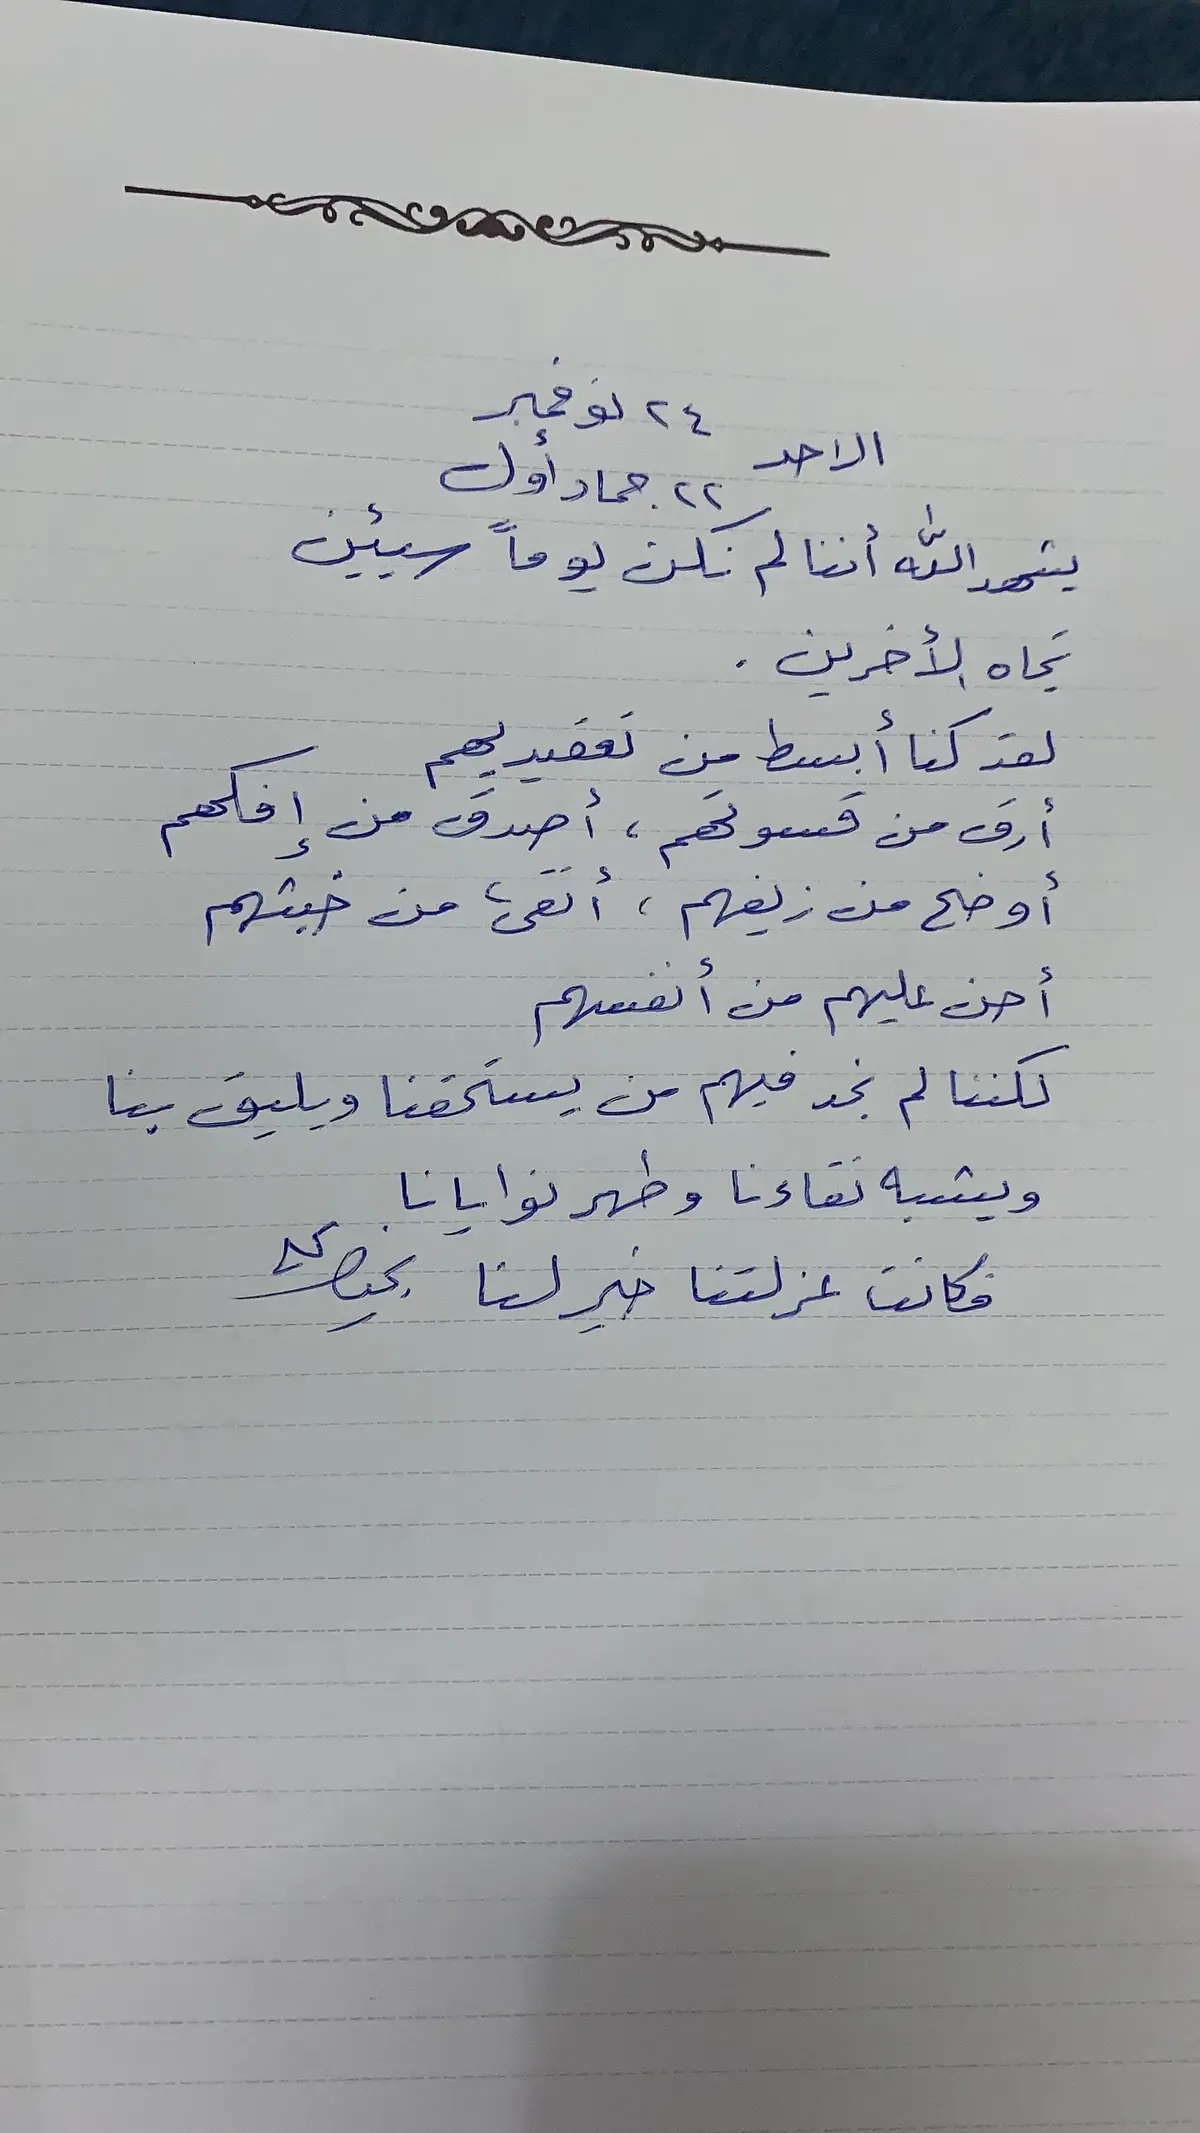 ٢٤ نوفمبر
الاحد
٢٢ جماد أول
يشهد الله أننا لم نكن يوماً سيئين
تجاه الأخرين .
لقد كنا أبسط من تعقيديهم
أرق من قسوتهم ، أصدق من إفكهم
أوضح من زيفهم ، أنقى من خبثهم
أحن عليهم من أنفسهم
لكننا لم نجد فيهم من يستحقنا ويليق بنا
ويشبه نقاءنا وطهر نوايانا .
فكانت عزلتنا خير لنا